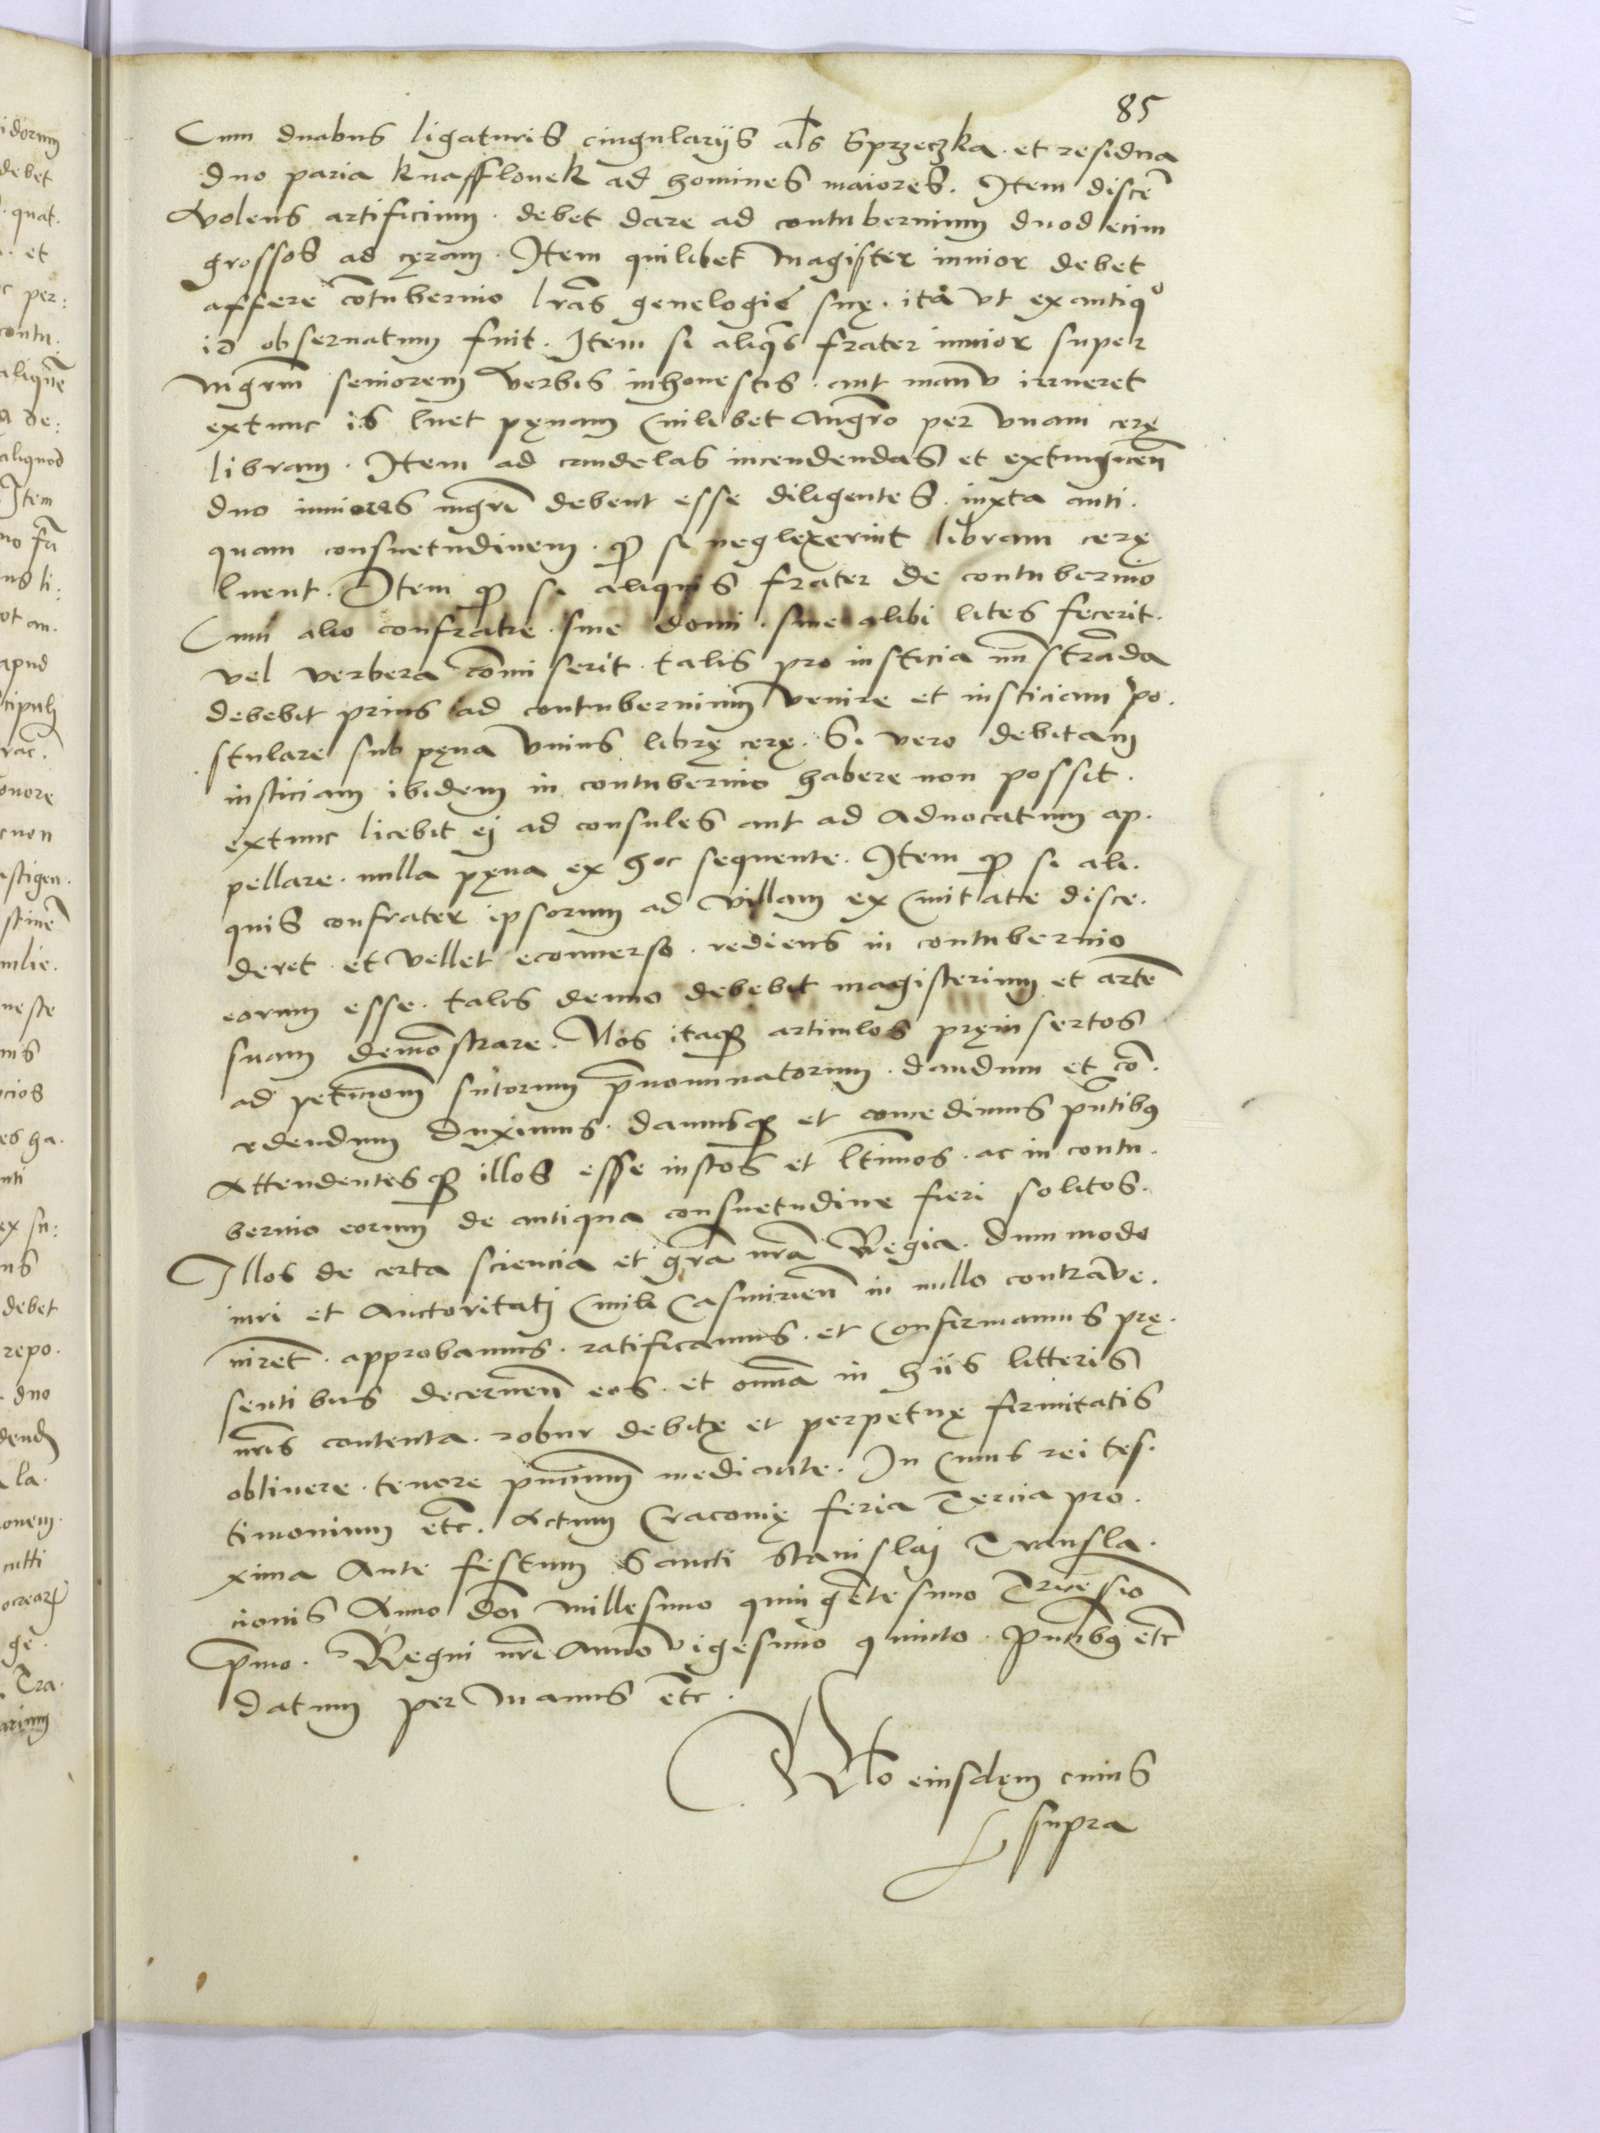 85
Cum duabus ligaturis cingularijs als Sprzeczka. et residua
duo paria knafflouek ad homines maiores. Item discē
volens artificium. debet dare ad contubernium duodecim
grossos ad cęram. Item quilibet Magister iunior debet
afferē cōtubernio lrās genelogie suę. ita vt ex antiqᵒ
id obseruatum fuit. Item si aliqs frater iunior super
Mgrm̄ seniorem verbis inhonestis. aut manu irrueret
extunc is luet pęnam cuilibet Mgrō per vnam cerę
libram. Item ad candelas incendendas et extingūen̄
duo iuniores mgrī debent esse diligentes. iuxta anti.
quam consuetudinem. qȝ si neglexerint libram cerę
luent. Item qȝ si aliquis frater de contubernio
Cum alio confratre. siue domi. siue alibi lites fecerit.
vel verbera cōmiserit. talis pro iusticia mīstrāda
debebit prius ad contubernium venire et iusticiam po.
stulare sub pęna vnius librę cerę. Si vero debitam
iusticiam ibidem in contubernio habere non possit.
extunc licebit ej ad consules aut ad Aduocatum ap.
pellare. nulla pęna ex hoc sequente. Item qȝ si ali.
quis confrater ipsorum ad villam ex ciuitate disce.
deret. et vellet econuerso. rediens in contubernio
eorum esse. talis denuo debebit magisterium et artē
suam demōstrare. Nos itaqȝ articulos pręinsertos
ad petc̄ionem sutorum p̄nominatorum. dandum et cō.
cedendum duximus. damusqȝ et concedimus pn̄tibȝ
Attendentesqȝ illos esse iustos et ltīmos. ac in contu.
bernio eorum de antiqua consuetudine fieri solitos.
Illos de certa sciencia et grā nrā Regia. dummodo
iuri et auctoritatj Ciuili Casimirien̄ in nullo contrāue.
niret. approbamus. ratificamus. et Confirmamus prę.
sentibus decernen̄ eos. et omīa in hijs litteris
nrīs contenta. robur debitę et perpetuę firmitatis
obtinere. tenore pn̄cium mediante. In Cuius rei tes.
timonium etc. Actum Cracouię feria Tercia pro.
xima Ante festum Sancti Stanislaj Transla.
cionis Anno Dnī millesimo quingētesimo Tricesīo
p̄mo. Regni nrī Anno vigesimo quinto. Pntibȝ etc
datum per Manus etc.
Rlo eiusdem cuius
supra